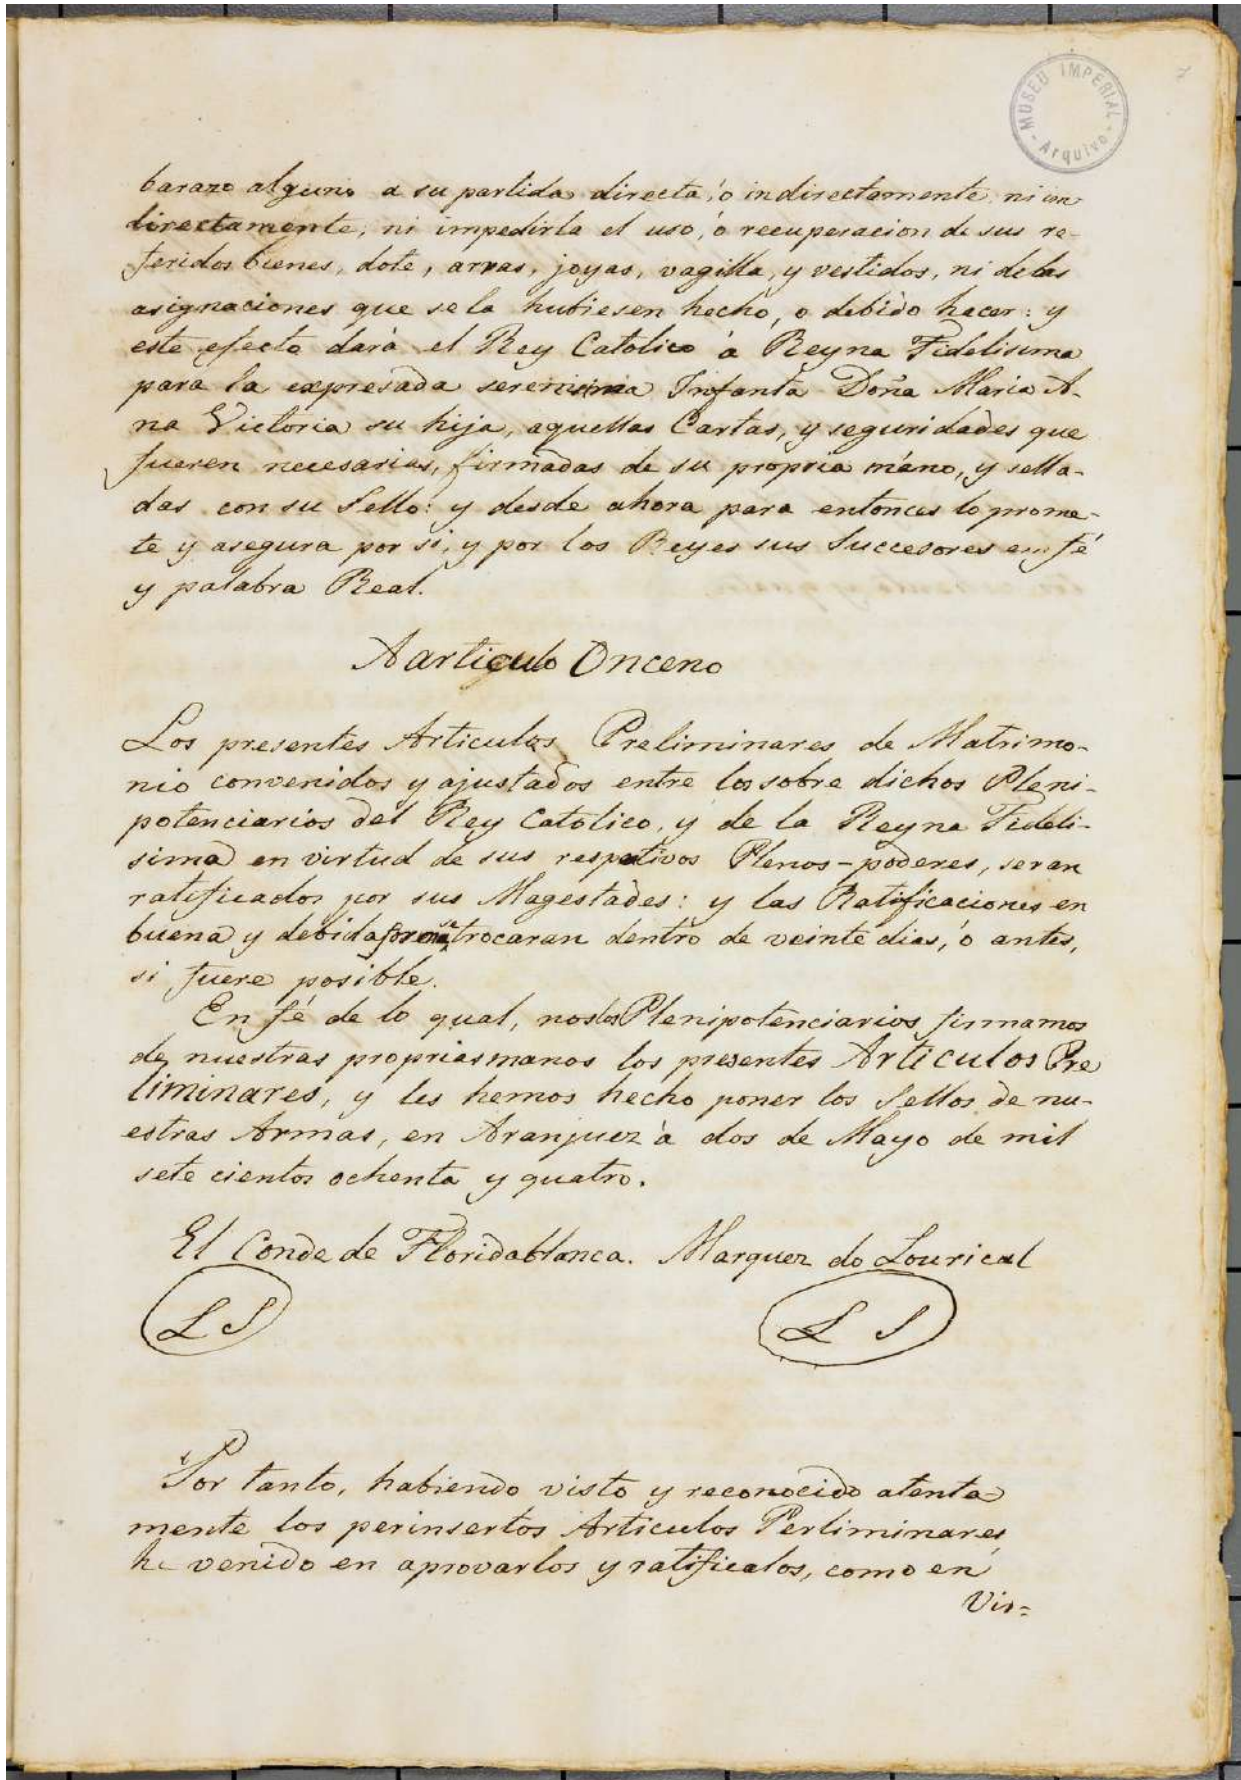 MUSEU IMPERIAL
- Arquivo -
7
barazo alguno a su partida directa, ó indirectamente, ni in
directamente, ni impedirla el uso, ó recuperacion de sus re-
feridos bienes, dote, arras, joyas, vagilla, y vestidos, ni de las
asignaciones que se la hubiesen hecho, o debido hacer: y
este efecto dará el Rey Catolico á Reyna Fidelisima
para la expresada serenisima Infanta Doña Maria A-
na Victoria su hija, aquellas Cartas, y seguridades que
fueren necesarias, firmadas de su propria mano, y sella-
das con su Sello: y desde ahora para entonces lo prome-
te y asegura por si, y por los Reyes sus Succesores en fé
y palabra Real.
Aarticulo Onceno
Los presentes Articulos Preliminares de Matrimo-
nio convenidos y ajustados entre los sobre dichos Pleni-
potenciarios del Rey Catolico, y de la Reyna Fideli-
sima en virtud de sus respetivos Plenos-poderes, seran
ratificados por sus Magestades: y las Ratificaciones en
buena y debida forma se trocaran dentro de veinte dias, ó antes,
si fuere posible.
En fé de lo qual, nos los Plenipotenciarios firmamos
de nuestras proprias manos los presentes Articulos Pre
liminares, y les hemos hecho poner los Sellos de nu-
estras Armas, en Aranjuez á dos de Mayo de mil
sete cientos ochenta y quatro.
El Conde de Floridablanca. Marquez do Lourical
L S L S
Por tanto, habiendo visto y reconocido atenta
mente los perinsertos Articulos Perliminares,
he venido en aprovarlos y ratificalos, como en
Vir=